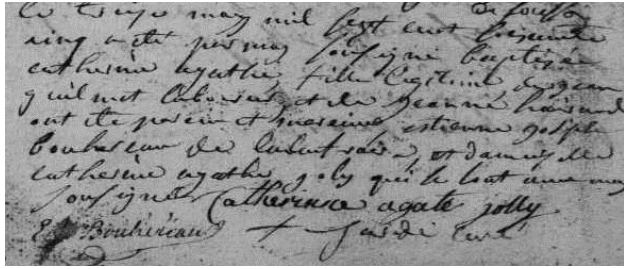 Le treize may mil sept cent soixante
cinq a ete par moy soussigné baptisée
catherine agathe fille legitime de jean
guilmot laboureur et de jeanne
ont ete parein et maraine estienne joseph
bouhereau de et damoiselle
catherine agathe joly qui le tout avec moy
soussigner Catherinne agate jolly
E Bouhéreau + curé